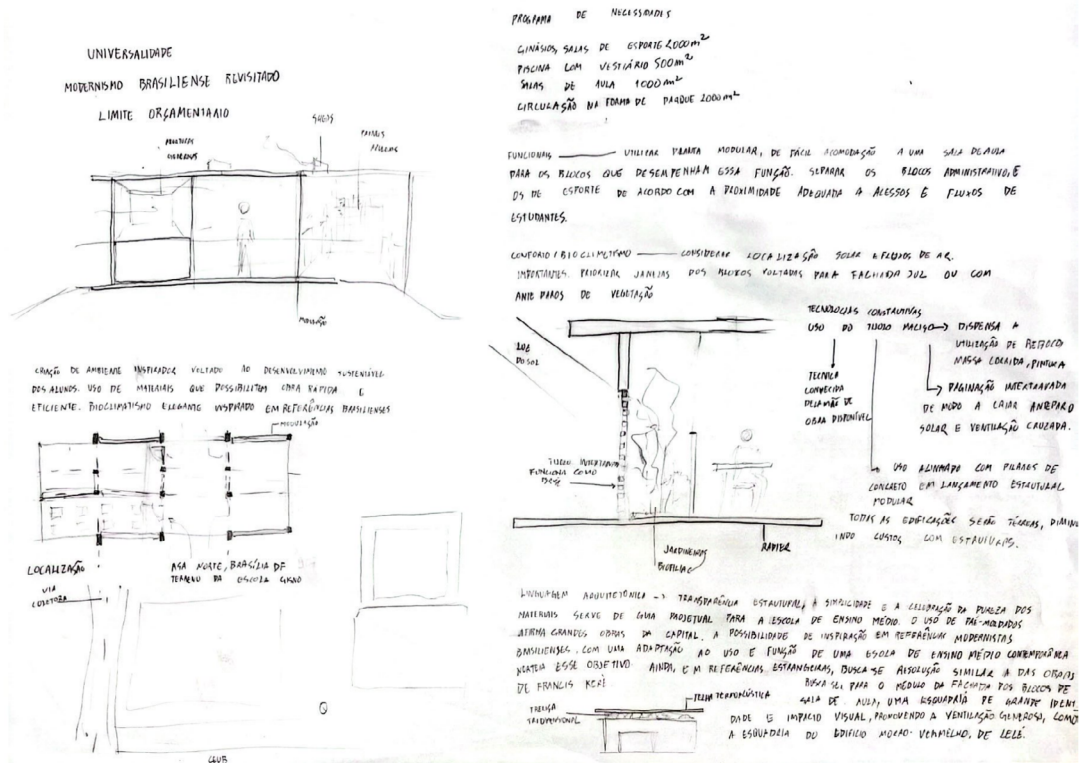 UNIVERSALIDADE
MODERNISMO BRASILIENSE REVISITADO
LIMITE ORÇAMENTARIO
SHEDS
MODULAÇÃO
CRIAÇÃO DE AMBIENTE INSPIRADOR VOLTADO AO DESENVOLVIMENTO SUSTENTÁVEL
DOS ALUNOS. USO DE MATERIAIS QUE POSSIBILITEM OBRA RAPIDA E
EFICIENTE. BIOCLIMATISMO ELEGANTE INSPIRADO EM REFERÊNCIAS BRASILIENSES
MODULAÇÃO
LOCALIZAÇÃO
ASA NORTE, BRASÍLIA DF
TERRENO DA ESCOLA
VIA
COLETORA
CLUB
PROGRAMA DE NECESSIDADES
GINÁSIOS, SALAS DE ESPORTE 2000m²
PISCINA COM VESTIÁRIO 500m²
SALAS DE AULA 1000m²
CIRCULAÇÃO NA FORMA DE PARQUE 2000m²
FUNCIONAIS UTILIZAR PLANTA MODULAR, DE FÁCIL ACOMODAÇÃO A UMA SALA DE AULA
PARA OS BLOCOS QUE DESEMPENHAM ESSA FUNÇÃO. SEPARAR OS BLOCOS ADMINISTRATIVO, E
OS DE ESPORTE DE ACORDO COM A PROXIMIDADE ADEQUADA A ACESSOS E FLUXOS DE
ESTUDANTES.
CONFORTO / BIOCLIMATISMO CONSIDERAR LOCALIZAÇÃO SOLAR E FLUXOS DE AR.
IMPORTANTES. PRIORIZAR JANELAS DOS BLOCOS VOLTADAS PARA FACHADA SUL OU COM
ANTEPAROS DE VEGETAÇÃO
LUZ
DO SOL
TIJOLO INTERTRAVADO
FUNCIONA COMO
JARDINEIRAS
BIOFILIA
RADIER
TECNOLOGIAS CONSTRUTIVAS
USO DO TIJOLO MACIÇO → DISPENSA A
UTILIZAÇÃO DE REBOCO
MASSA CORRIDA, PINTURA
TECNICA
CONHECIDA
PELA MÃO DE
OBRA DISPONÍVEL
PAGINAÇÃO INTERTRAVADA
DE MODO A CRIAR ANTEPARO
SOLAR E VENTILAÇÃO CRUZADA.
USO ALINHADO COM PILARES DE
CONCRETO EM LANÇAMENTO ESTRUTURAL
MODULAR
TODAS AS EDIFICAÇÕES SERÃO TÉRREAS, DIMINU
INDO CUSTOS COM ESTRUTURAS.
LINGUAGEM ARQUITETÔNICA → TRANSPARÊNCIA ESTRUTURAL, A SIMPLICIDADE E A CELEBRAÇÃO DA PUREZA DOS
MATERIAIS SERVE DE GUIA PROJETUAL PARA A ESCOLA DE ENSINO MÉDIO. O USO DE PRÉ-MOLDADOS
AFIRMA GRANDES OBRAS DA CAPITAL. A POSSIBILIDADE DE INSPIRAÇÃO EM REFERÊNCIAS MODERNISTAS
BRASILIENSES, COM UMA ADAPTAÇÃO AO USO E FUNÇÃO DE UMA ESCOLA DE ENSINO MÉDIO CONTEMPORÂNEA
NORTEIA ESSE OBJETIVO. AINDA, EM REFERÊNCIAS ESTRANGEIRAS, BUSCA-SE RESOLUÇÃO SIMILAR A DAS OBRAS
DE FRANCIS KÉRÉ.
BUSCA-SE, PARA O MÓDULO DA FACHADA DOS BLOCOS DE
SALA DE AULA, UMA ESQUADRIA DE GRANDE IDENTI
DADE E IMPACTO VISUAL, PROMOVENDO A VENTILAÇÃO GENEROSA, COMO
A ESQUADRIA DO EDIFÍCIO MORRO VERMELHO, DE LELÉ.
TELHA TERMOACÚSTICA
TRELIÇA
TRIDIMENSIONAL